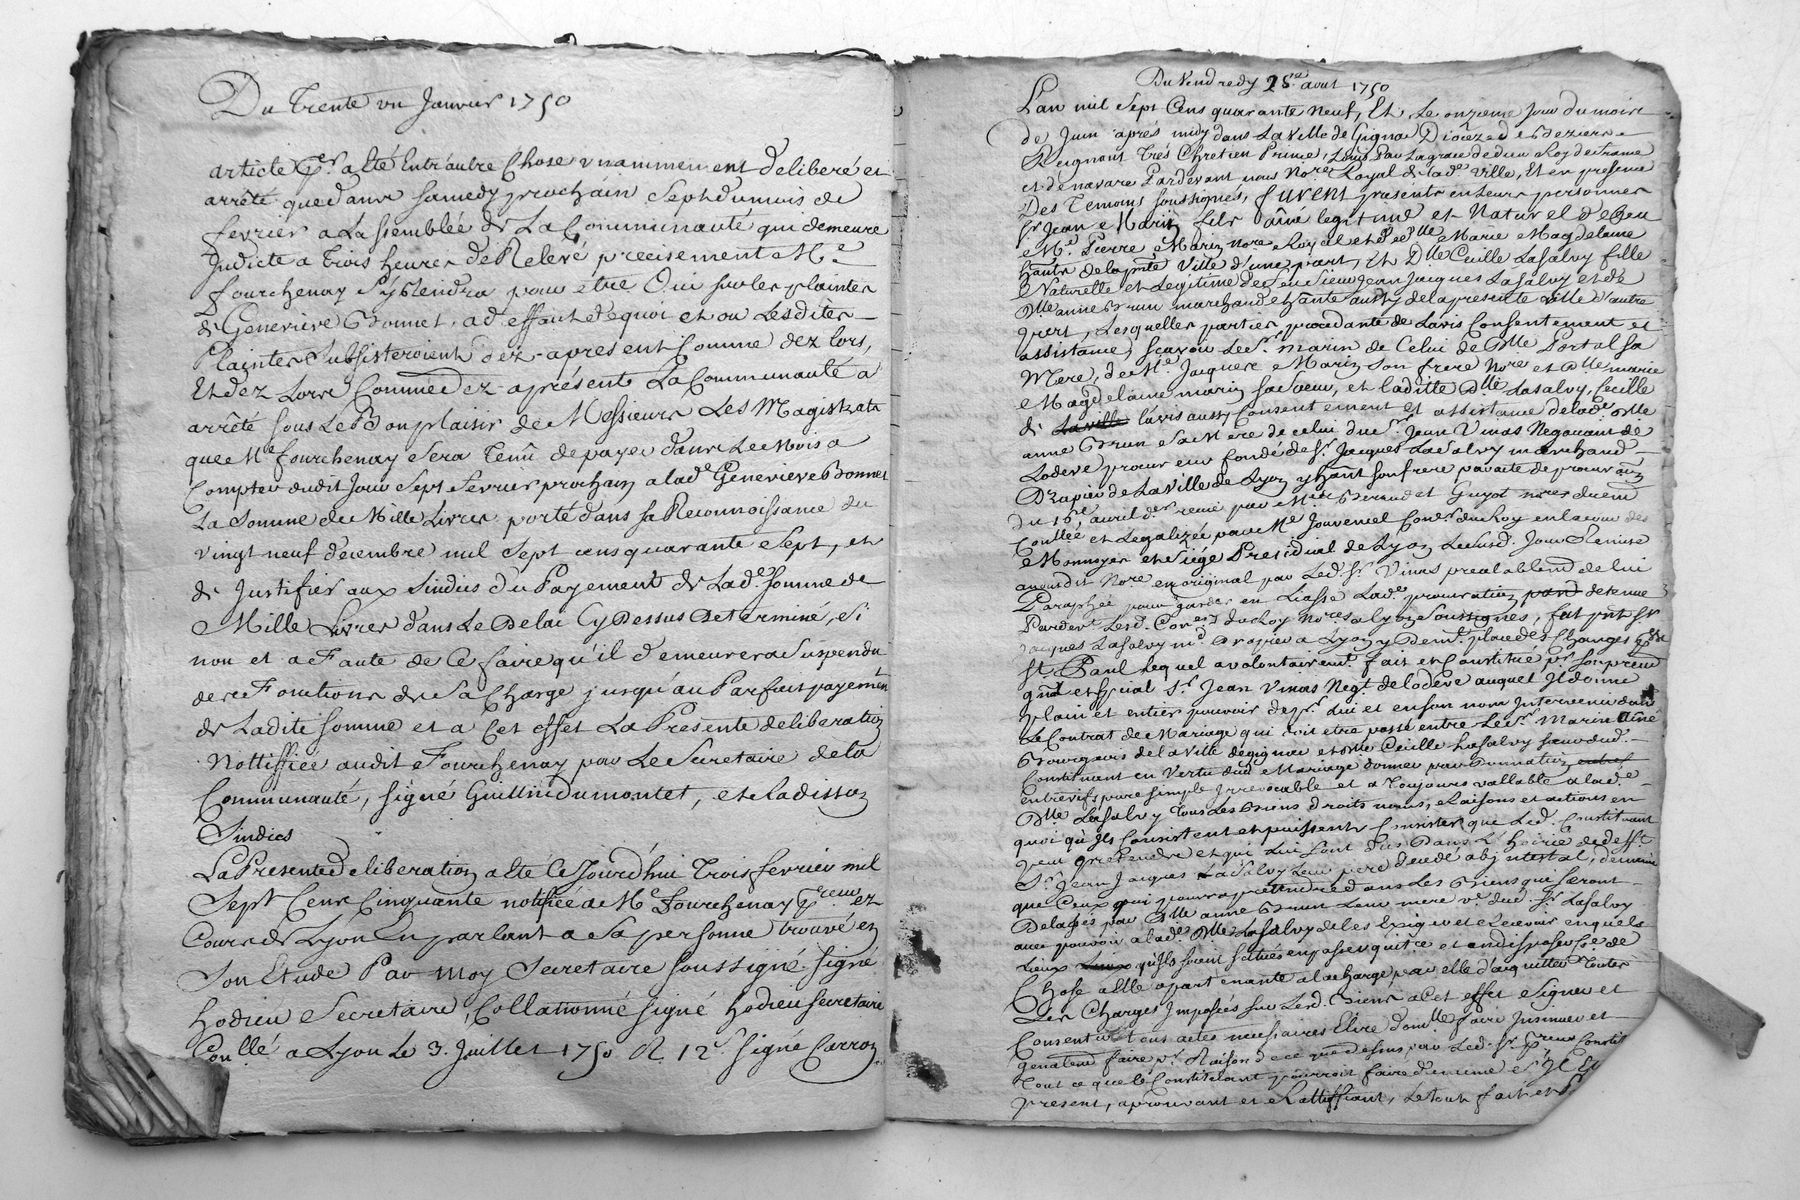 Du Trente un Janvier 1750
article 9.er a eté Entr'autre Chose unanimement deliberé et
arrêté que dans samedy prochain sept du mois de
fevrier a Lassemblée de La Communauté qui demeure
Indicte a trois heures de Relevé precisement Me
fourchenay Sy Rendra pour être Oui sur les plaintes
de Genevieve Bonnet, a deffaut de quoi et ou Lesdites
Plaintes Subsisteroient dez-apresent Comme dez lors,
Et dez Lors Comme dez-apresent La Communauté a
arrêté sous Le Bon plaisir de Messieurs Les Magistrats
que Me fourchenay Sera Tenû de payer dans Le Mois a
Compter dudit Jour Sept fevrier prochain a lade Genevieve Bonnet
La Somme de Mille Livres porté dans sa Reconnoissance du
vingt neuf decembre mil sept cens quarante Sept, et
de Justifier aux Sindics du Payement de Lade Somme de
Mille Livres dans Le Delai Cy Dessus Determiné, Si
non et a Faute de Ce faire qu'il demeurera Suspendu
des Fonctions de Sa Charge jusqu'au Parfait payement
de Ladite Somme et a Cet effet La Presente deliberation
Nottiffiée audit Fourchenay par Le Secretaire de la
Communauté, signé Guillin dumontet, et Ladisson
Sindics
La Presente deliberation a eté Ce Jourd'hui Trois fevrier mil
Sept Cens Cinquante notifiée a Me Fourchenay ez
Cours de Lyon En parlant a Sa personne trouvé en
Son Etude Par Moy Secretaire Soussigné signé
hodieu Secretaire, Collationné signé hodieu secretaire
Conllé a Lyon Le 3. Juillet 1750 R. 12s. signé Carron
Du Vendredy 28e aout 1750
Lan mil Sept Cens quarante neuf, Et Le onzieme Jour du mois
de Juin aprés midy dans La Ville de Gignac Diocèze de Beziers
Reignant Trés Chretien Prince, Louis Par La grace de dieu Roy de france
et de navare Pardevant nous Nore Royal de lade Ville, Et en presence
Des Temoins soussignés, fuvent presents en leurs personnes
Sr Jean Marin fils ainé legitime et Naturel d'efeu
Me Pierre Marin nore Royal et de Dlle Marie Magdelaine
hants de la pnte Ville d'une part, Et Dlle Cecille Lasalvy fille
Naturelle et Legitime de feu Sieur Jean Jacques Lasalvy et de
Dlle anne Brun marchand hante aussy de la presente Ville d'autre
part, Lesquelles parties procedante de Lavis Consentement et
assistance, sçavoir Le Sr. Marin de Celui de Dlle Portal sa
Mere, de Me Jacques Marin son frere Nore et Dlle marie
Magdelaine marin sa soeur, et laditte Dlle Lasalvy, Cecille
de La ville lavis aussy Consentement et assistance de lade Dlle
anne Brun Sa Mere de celui du Sr. Jean Vinas Negociant de
Lodeve procureur fondé de Sr. Jacques Lasalvy marchand
Drapier de La Ville de Lyon y hant son frere par acte de procuron
du 16e avril der recu par Mes Beraud et Guyot nores duem
Conllée et Legalizée par Me Jouvencel Coner du Roy en la cour des
Monnoyes et Siége Presidial de Lyon Ledit Jour Remise
audit Nore en original par Led. Sr. Vinas prealablemt de lui
Paraphée pour garder en Liasse Lade procuration pard detenue
Pardevt Lesd. Coners du Roy Nores a Lyon Soussignés, fut pnt Sr
Jacques Lasalvy md Drapier a Lyon y Demt. place des Changes psse
St. Paul Lequel a volontairemt. fait et Constitué pr son procur
gnal et spcial Sr. Jean Vinas Negt de Lodeve auquel Il donne
plain et entier pouvoir de pr. Lui et en son nom Intervenir dans
Le Contrat de Mariage qui doit etre passé entre Le Sr. Marin ainé
Bourgeois de la Ville de gignac et Dlle Cecille Lasalvy soeur dud.
Constituant en Vertu dud Mariage donner par Donnation entref
entrevifs pure simple Irrevocable et a Toujours vallable a lade
Dlle Lasalvy Tous Les Biens droits noms, Raisons et actions en
quoi qu'Ils Consistent et puissent Consister que Led. Constituant
peut pretendre et qui Lui sont dus Dans L'hoirie de defft
Sr. Jean Jacques Lasalvy Leur pere decedé abintestat, de même
que Ceux qu'il pourra pretendre dans Les Biens qui seront
Delaissés par Dlle anne Brun Leur mere ve dud. Sr. Lasalvy
avec pouvoir a lade Dlle Lasalvy de les Exiger et Recevoir en quels
Lieux Lieux qu'ils soient situés en passer quitce et en disposer Ce de
Chose a Elle apartenante a la charge par elle d'acquitter Toutes
Les Charges Imposées sur Lesd. Biens a Cet effet Signer et
Consentir tous actes necessaires Elire domlle faire Insinuer et
genalemt faire pr. Raison de ce que dessus par Led. Sr. Preur Constit
Tout ce que le Constituant pourroit faire de même s'Il Et
present, aprouvant et Ratiffiant, Le tout fait et P